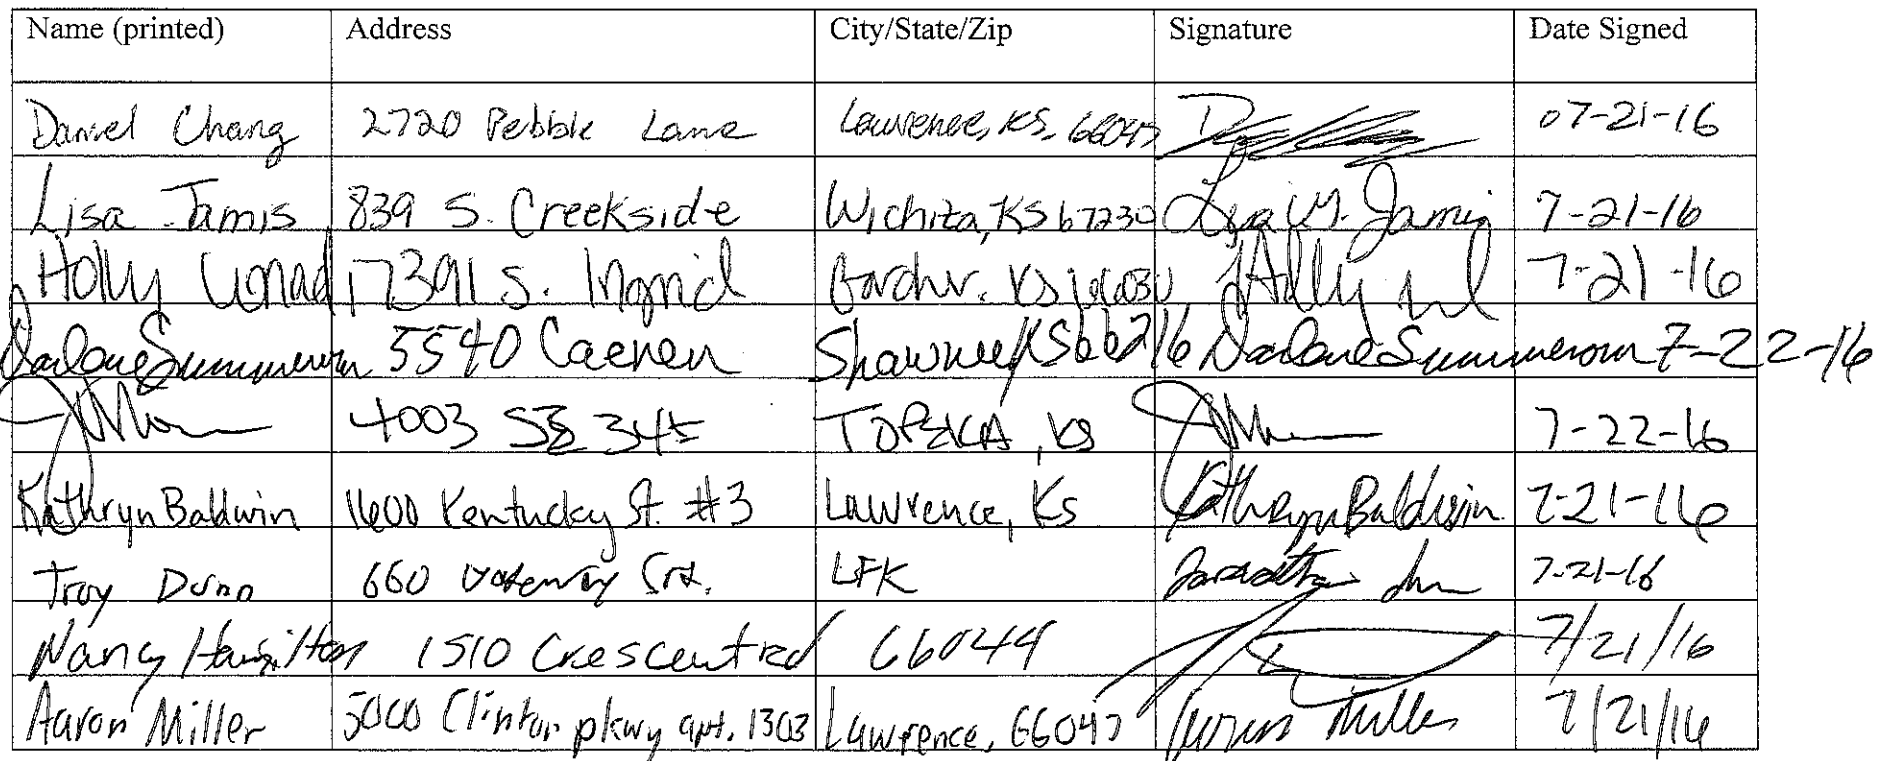 Name (printed) Address City/State/Zip Signature Date Signed
Daniel Chang 2720 Pebble Lane Lawrence, KS, 66047 07-21-16
Lisa Jamis 839 S. Creekside Wichita, KS 67230 Lisa M. Jamis 7-21-16
Holly 17391 S. Ingrid Gardner, KS 66030 Holly 7-21-16
Darlene Summerour 5540 Caenen Shawnee KS 66216 Darlene Summerour 7-22-16
4003 SE 34th TOPEKA, KS 7-22-16
Kathryn Baldwin 1600 Kentucky St. #3 Lawrence, KS Kathryn Baldwin 7-21-16
Troy Dunn 660 Gateway Crt. LFK 7-21-16
Nancy Hamilton 1510 Crescent rd 66044 7/21/16
Aaron Miller 5000 Clinton pkwy apt. 1303 Lawrence, 66047 Aaron Miller 7/21/16